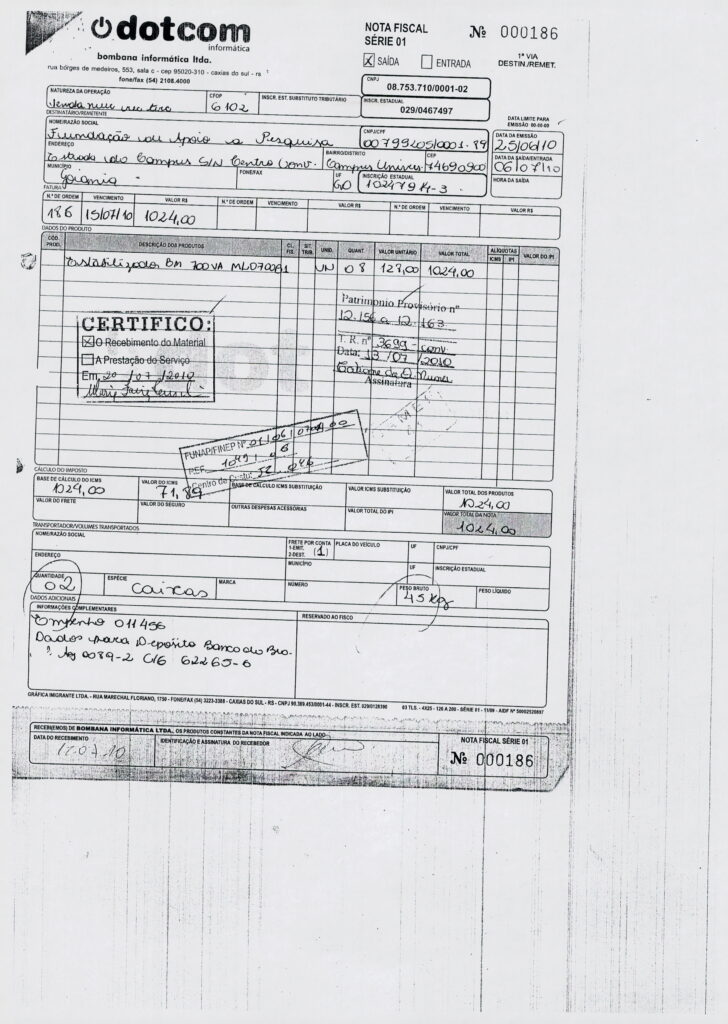 dotcom
informática
bombana informática ltda.
rua borges de medeiros, 553, sala c - cep 95020-310 - caxias do sul - rs
fone/fax (54) 2108.4000
NOTA FISCAL
SÉRIE 01
Nº 000186
X SAÍDA ENTRADA
1ª VIA
DESTIN./REMET.
CNPJ
08.753.710/0001-02
NATUREZA DA OPERAÇÃO CFOP INSCR. EST. SUBSTITUTO TRIBUTÁRIO INSCR. ESTADUAL
6102 029/0467497
DATA LIMITE PARA
EMISSÃO 00-00-00
DESTINATÁRIO/REMETENTE
NOME/RAZÃO SOCIAL CNPJ/CPF DATA DA EMISSÃO
Fundação de Apoio a Pesquisa 00799205/0001-89 25/06/10
ENDEREÇO BAIRRO/DISTRITO CEP DATA DA SAÍDA/ENTRADA
Estrada do Campus S/N Centro Conv. Campus Univers 74690900 06/07/10
MUNICÍPIO FONE/FAX UF INSCRIÇÃO ESTADUAL HORA DA SAÍDA
Goiania GO
FATURA
N.º DE ORDEM VENCIMENTO VALOR R$ N.º DE ORDEM VENCIMENTO VALOR R$ N.º DE ORDEM VENCIMENTO VALOR R$
186 15/07/10 1024,00
DADOS DO PRODUTO
CÓD. PROD. DESCRIÇÃO DOS PRODUTOS CL. FIS. SIT. TRIB. UNID. QUANT. VALOR UNITÁRIO VALOR TOTAL ALÍQUOTAS ICMS IPI VALOR DO IPI
Estabilizador 700VA UN 08 128,00 1024,00
Patrimonio Provisório nº
12.156 a 12.163
T. R. nº 3699 - conv
Data: 13/07/2010
Assinatura
CERTIFICO:
X O Recebimento do Material
A Prestação do Serviço
Em 20/07/2010
FUNAP/FINEP Nº
REF.
Centro de Custo:
CÁLCULO DO IMPOSTO
BASE DE CÁLCULO DO ICMS VALOR DO ICMS BASE DE CÁLCULO ICMS SUBSTITUIÇÃO VALOR ICMS SUBSTITUIÇÃO VALOR TOTAL DOS PRODUTOS
1024,00 71,89 1024,00
VALOR DO FRETE VALOR DO SEGURO OUTRAS DESPESAS ACESSÓRIAS VALOR TOTAL DO IPI VALOR TOTAL DA NOTA
1024,00
TRANSPORTADOR/VOLUMES TRANSPORTADOS
NOME/RAZÃO SOCIAL FRETE POR CONTA 1-EMIT. 2-DEST. (1) PLACA DO VEÍCULO UF CNPJ/CPF
ENDEREÇO MUNICÍPIO UF INSCRIÇÃO ESTADUAL
QUANTIDADE ESPÉCIE MARCA NÚMERO PESO BRUTO PESO LÍQUIDO
02 caixas 45 kg
DADOS ADICIONAIS
INFORMAÇÕES COMPLEMENTARES RESERVADO AO FISCO
Empenho 011456
Dados para Depósito Banco do
Ag 0089-2 C/C 62265-6
GRÁFICA IMIGRANTE LTDA. - RUA MARECHAL FLORIANO, 1750 - FONE/FAX (54) 3223-3388 - CAXIAS DO SUL - RS
RECEBI(EMOS) DE BOMBANA INFORMÁTICA LTDA., OS PRODUTOS CONSTANTES DA NOTA FISCAL INDICADA AO LADO
DATA DO RECEBIMENTO IDENTIFICAÇÃO E ASSINATURA DO RECEBEDOR
NOTA FISCAL SÉRIE 01
Nº 000186